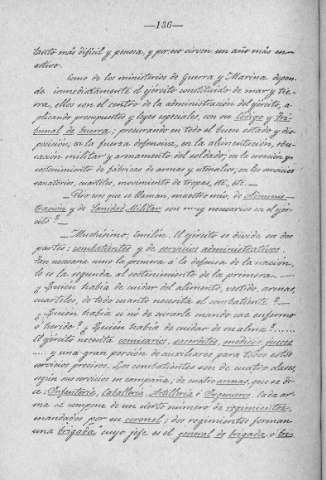 —136—
tado más difícil y penosa, y por no sirven un año más en
activo.
Como de los ministerios de Guerra y Marina depen-
de inmediatamente el ejército constituido de mar y tie-
rra, ellos son el centro de la administración del ejército, a-
plicando presupuestos y leyes especiales, con un Código y Tri-
bunal de Guerra; procurando en todo el buen estado y dis-
posición, en la fuerza defensora, en la alimentación, edu-
cación militar y armamento del soldado, en la creación y
sostenimiento de fábricas de armas y utensilios, en los servicios
sanitarios, cuarteles, movimiento de tropas, etc., etc. —
— Por eso que se llaman, maestro mío, de Adminis-
tración y de Sanidad Militar son muy necesarios en el ejér-
cito? —
— Muchísimo, Emilio. El ejército se divide en dos
partes: combatientes y de servicios administrativos.
Tan necesaria es la primera a la defensa de la nación,
lo es la segunda al sostenimiento de la primera. —
¿Quién había de cuidar del alimento, vestido, armas,
cuarteles, de todo cuanto necesita el combatiente? —
¿Quién había si no de curarle cuando cae enfermo
o herido? ¿Quién había de cuidar de su alma?......
El ejército necesita comisarios, sacerdotes, médicos, jueces
.... y una gran porción de auxiliares para todos estos
servicios precisos. Los combatientes son de cuatro clases,
según sus servicios en campaña; de cuatro armas, que se di-
ce: Infantería, Caballería, Artillería e Ingenieros. Cada ar-
ma se compone de un cierto número de regimientos,
mandados por un coronel; dos regimientos forman
una brigada cuyo jefe es el general de brigada o bri-